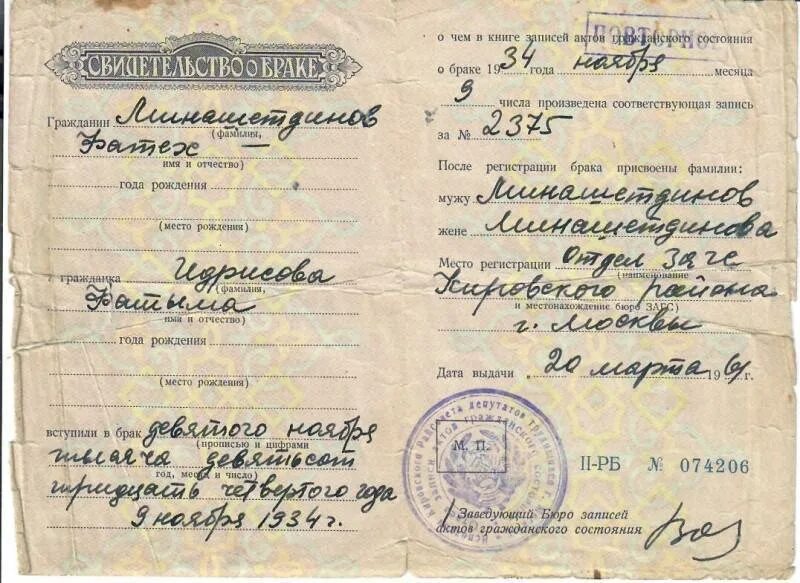 СВИДЕТЕЛЬСТВО О БРАКЕ
Гражданин Минашетдинов
(фамилия,
Фатех —
имя и отчество)
года рождения
(место рождения)
гражданка Идрисова
(фамилия,
Фатыма
имя и отчество)
года рождения
(место рождения)
вступили в брак девятого ноября
(прописью и цифрами
тысяча девятьсот
год, месяц и число)
тридцать четвертого года
9 ноября 1934 г.
ПОВТОРНО
о чем в книге записей актов гражданского состояния
о браке 1934 года ноября месяца
9 числа произведена соответствующая запись
за № 2375
После регистрации брака присвоены фамилии:
мужу Минашетдинов
жене Минашетдинова
Место регистрации Отдел загс
(наименование
Кировского района
и местонахождение бюро ЗАГС)
г. Москвы
Дата выдачи 20 марта 1961 г.
М. П.
II-РБ № 074206
Заведующий Бюро записей
актов гражданского состояния